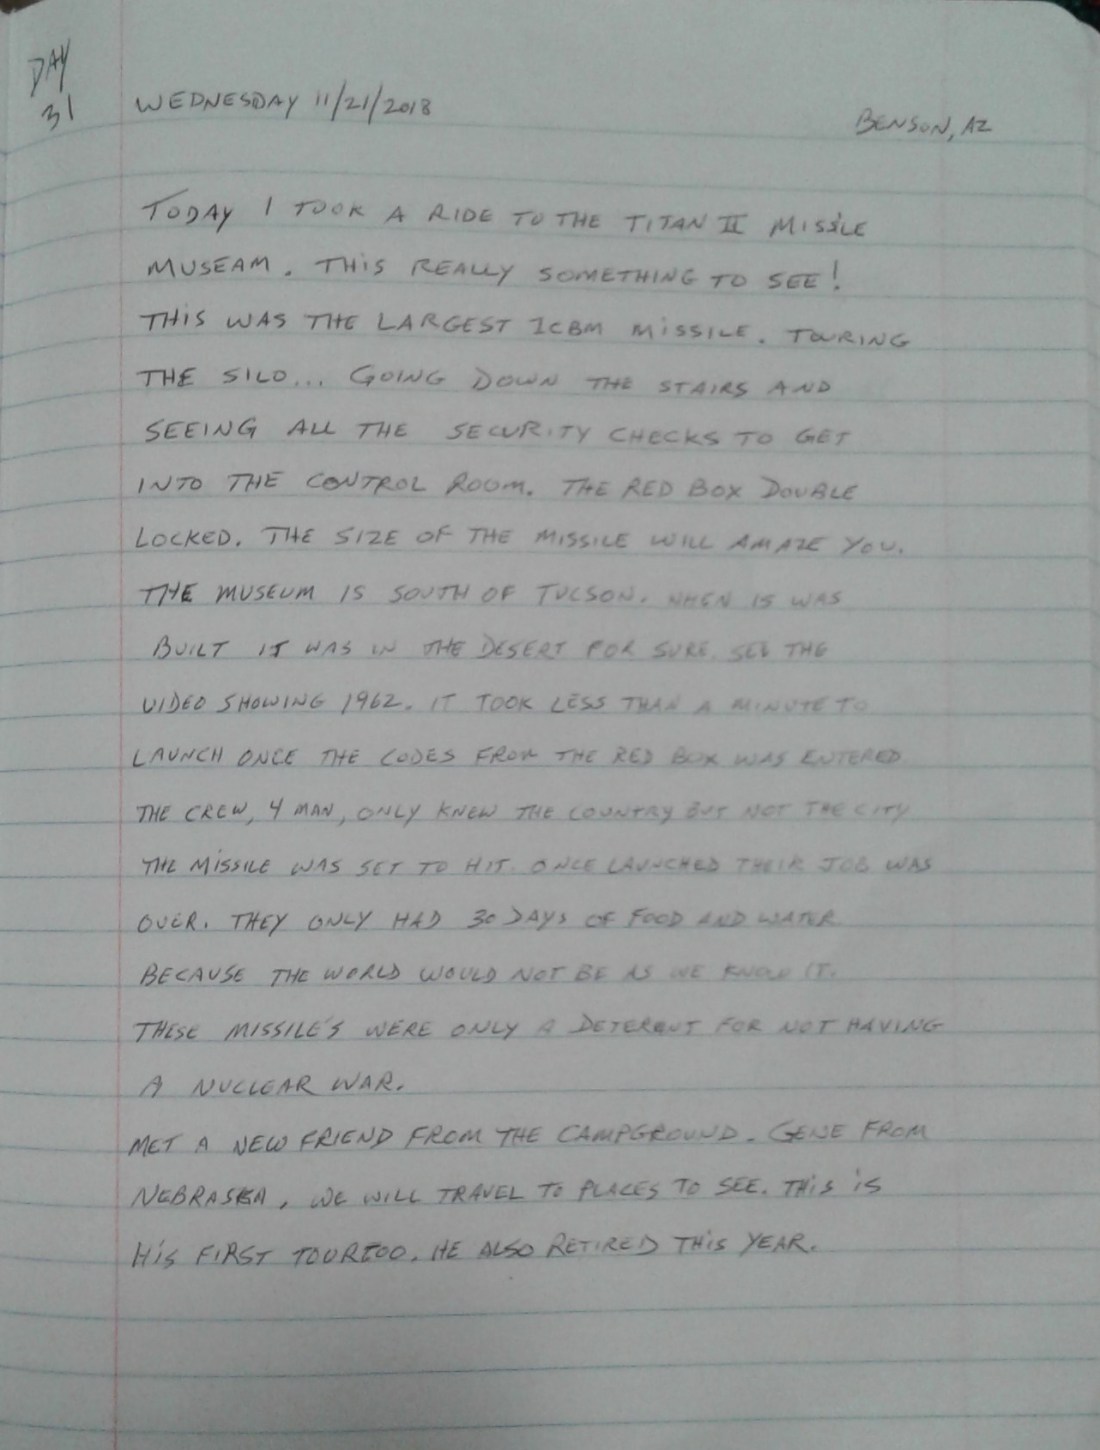 DAY
31
WEDNESDAY 11/21/2018
BENSON, AZ
TODAY I TOOK A RIDE TO THE TITAN II MISSILE
MUSEAM. THIS REALLY SOMETHING TO SEE!
THIS WAS THE LARGEST ICBM MISSILE. TOURING
THE SILO... GOING DOWN THE STAIRS AND
SEEING ALL THE SECURITY CHECKS TO GET
INTO THE CONTROL ROOM. THE RED BOX DOUBLE
LOCKED. THE SIZE OF THE MISSILE WILL AMAZE YOU.
THE MUSEUM IS SOUTH OF TUCSON. WHEN IS WAS
BUILT IT WAS IN THE DESERT FOR SURE. SEE THE
VIDEO SHOWING 1962. IT TOOK LESS THAN A MINUTE TO
LAUNCH ONCE THE CODES FROM THE RED BOX WAS ENTERED
THE CREW, 4 MAN, ONLY KNEW THE COUNTRY BUT NOT THE CITY
THE MISSILE WAS SET TO HIT. ONCE LAUNCHED THEIR JOB WAS
OVER. THEY ONLY HAD 30 DAYS OF FOOD AND WATER
BECAUSE THE WORLD WOULD NOT BE AS WE KNOW IT.
THESE MISSILE'S WERE ONLY A DETERENT FOR NOT HAVING
A NUCLEAR WAR.
MET A NEW FRIEND FROM THE CAMPGROUND. GENE FROM
NEBRASKA, WE WILL TRAVEL TO PLACES TO SEE. THIS IS
HIS FIRST TOUR TOO. HE ALSO RETIRED THIS YEAR.